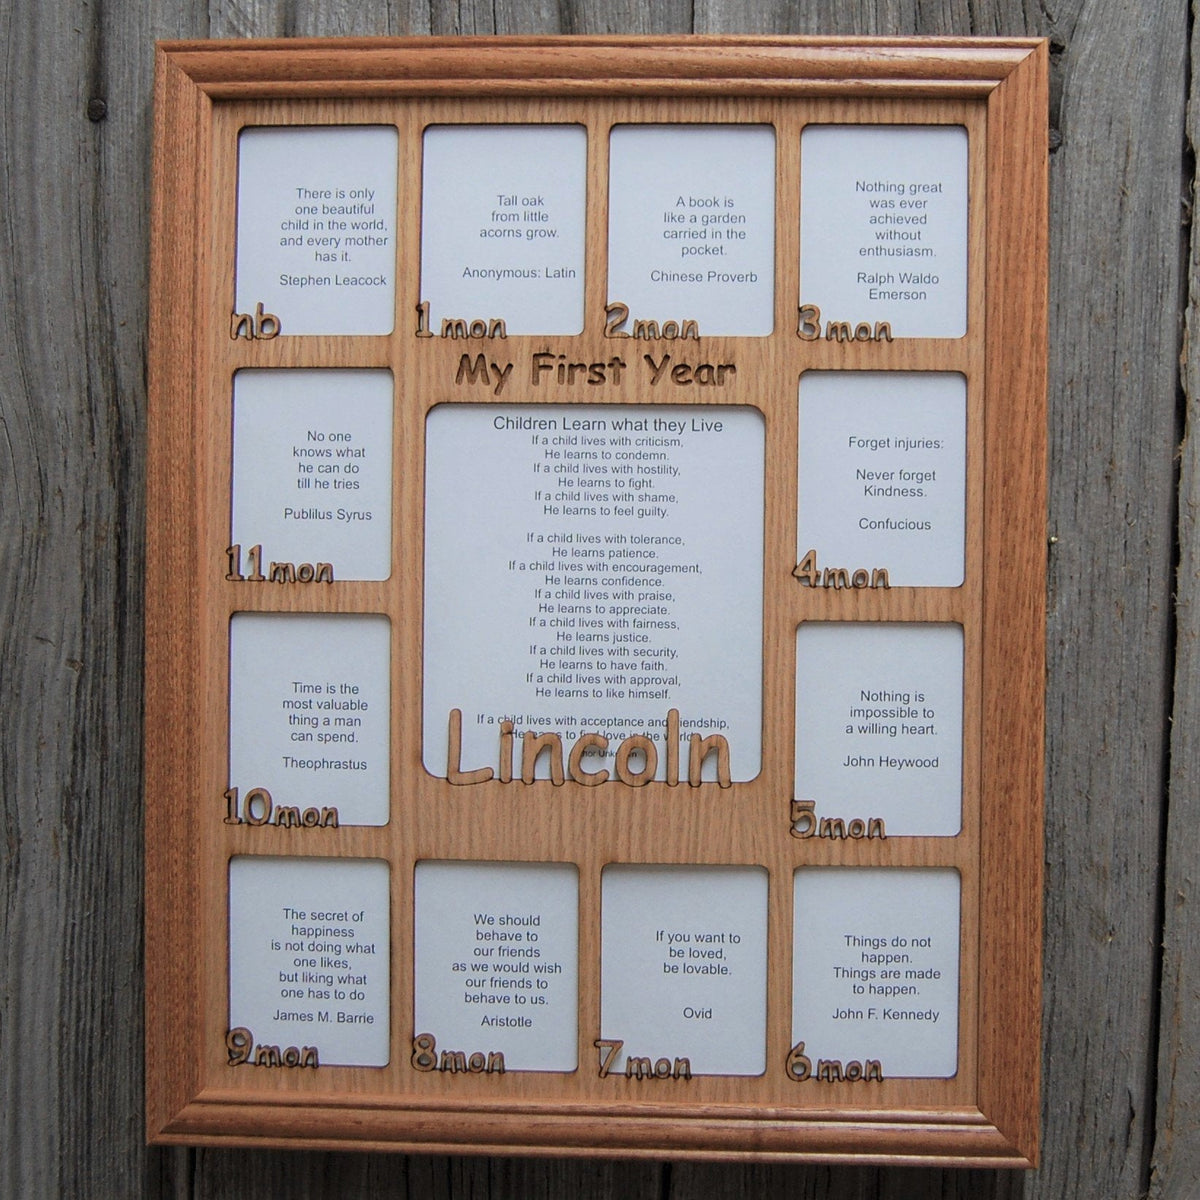 There is only
one beautiful
child in the world,
and every mother
has it.
Stephen Leacock
nb
Tall oak
from little
acorns grow.
Anonymous: Latin
1mon
A book is
like a garden
carried in the
pocket.
Chinese Proverb
2mon
Nothing great
was ever
achieved
without
enthusiasm.
Ralph Waldo
Emerson
3mon
My First Year
No one
knows what
he can do
till he tries
Publilus Syrus
11mon
Children Learn what they Live
If a child lives with criticism,
He learns to condemn.
If a child lives with hostility,
He learns to fight.
If a child lives with shame,
He learns to feel guilty.
If a child lives with tolerance,
He learns patience.
If a child lives with encouragement,
He learns confidence.
If a child lives with praise,
He learns to appreciate.
If a child lives with fairness,
He learns justice.
If a child lives with security,
He learns to have faith.
If a child lives with approval,
He learns to like himself.
If a child lives with acceptance and
to love in the world
Lincoln
Forget injuries:
Never forget
Kindness.
Confucious
4mon
Time is the
most valuable
thing a man
can spend.
Theophrastus
10mon
Nothing is
impossible to
a willing heart.
John Heywood
5mon
The secret of
happiness
is not doing what
one likes,
but liking what
one has to do
James M. Barrie
9mon
We should
behave to
our friends
as we would wish
our friends to
behave to us.
Aristotle
8mon
If you want to
be loved,
be lovable.
Ovid
7mon
Things do not
happen.
Things are made
to happen.
John F. Kennedy
6mon